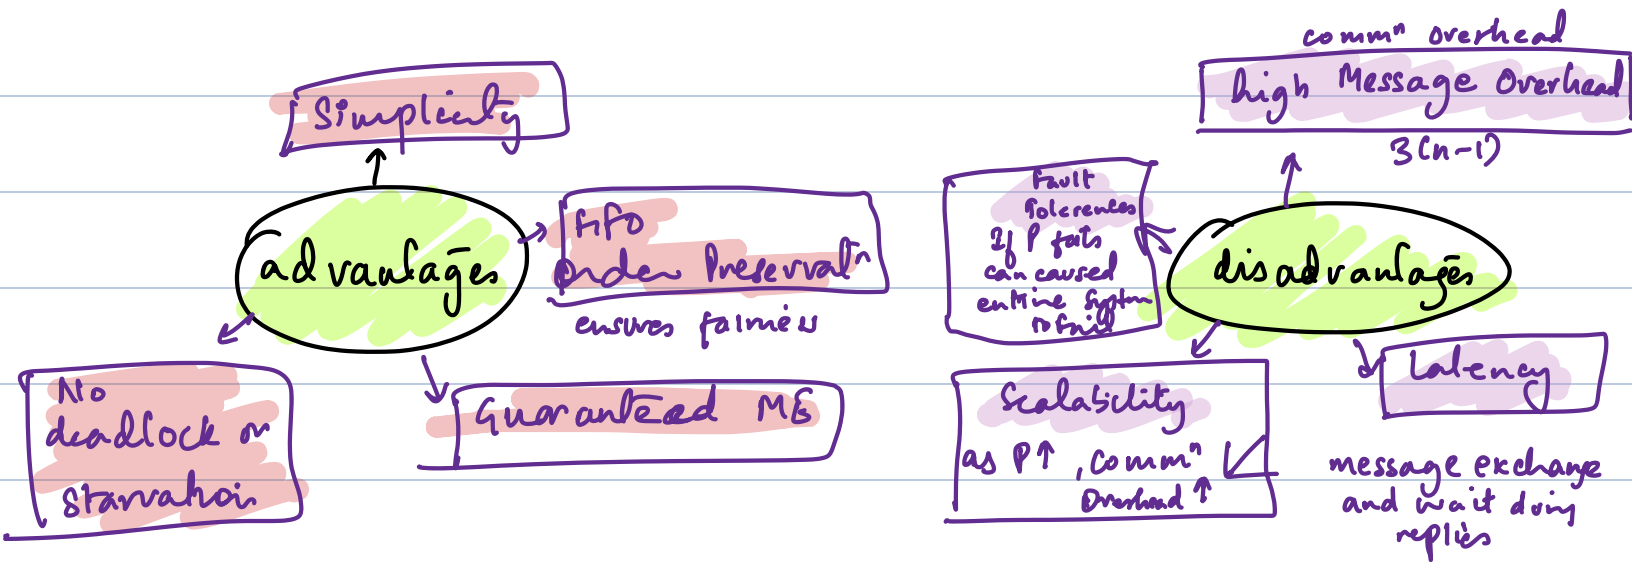 Simplicity
advantages
FIFO
Order Preservatⁿ
ensures fairness
No
deadlock or
starvation
Guaranteed ME
commⁿ overhead
high Message Overhead
3(n-1)
fault
Tolerences
If P fails
can caused
entire system
to fail
disadvantages
Scalability
as P↑, Commⁿ
Overhead ↑
Latency
message exchange
and wait
replies